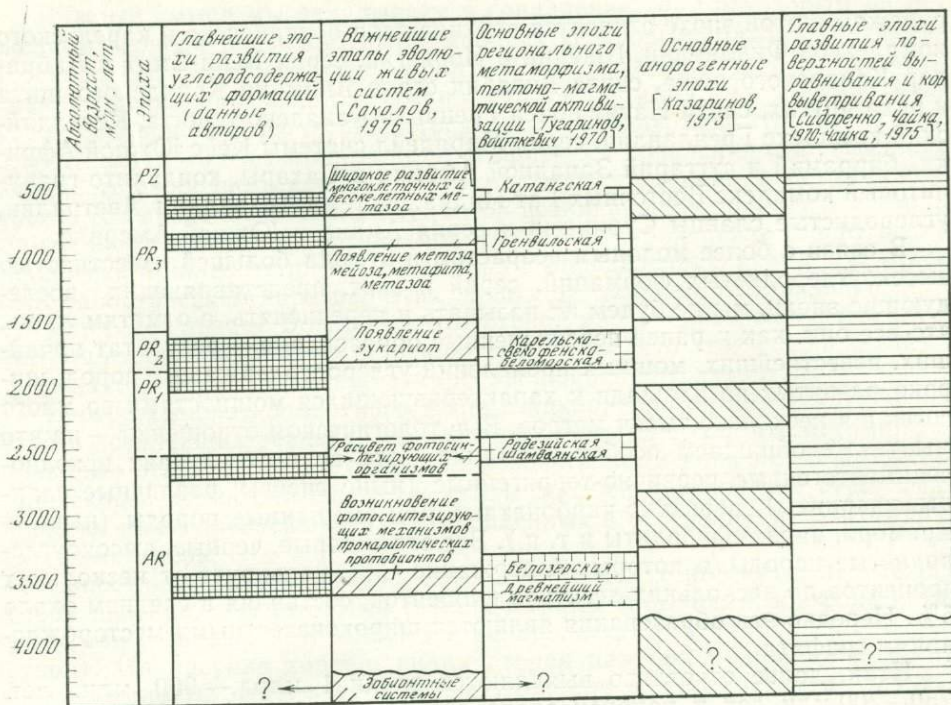 Абсолютный
возраст,
млн. лет
Эпоха
Главнейшие эпо-
хи развития
углеродсодержа-
щих формаций
(данные
авторов)
Важнейшие
этапы эволю-
ции живых
систем
[Соколов,
1976]
Основные эпохи
регионального
метаморфизма,
тектоно-магма-
тической активи-
зации [Тугаринов,
Войткевич 1970]
Основные
анорогенные
эпохи
[Казаринов,
1973]
Главные эпохи
развития по-
верхностей вы-
равнивания и кор
выветривания
[Сидоренко, Чайка,
1970; Чайка, 1975]
500
1000
1500
2000
2500
3000
3500
4000
PZ
PR3
PR2
PR1
AR
Широкое развитие
многоклеточных и
бесскелетных ме-
тазоа
Появление метоза,
мейоза, метафита,
метазоа
Появление
эукариот
Расцвет фотосин-
тезирующих
организмов
Возникновение
фотосинтезирую-
щих механизмов
прокариотических
протобионтов
? ←
Эобионтные
системы
Катангская
Гренвильская
Карельско-
свекофенско-
беломорская
Родезийская
(Шамваянская)
Белозерская
Древнейший
магматизм
→ ?
?
?